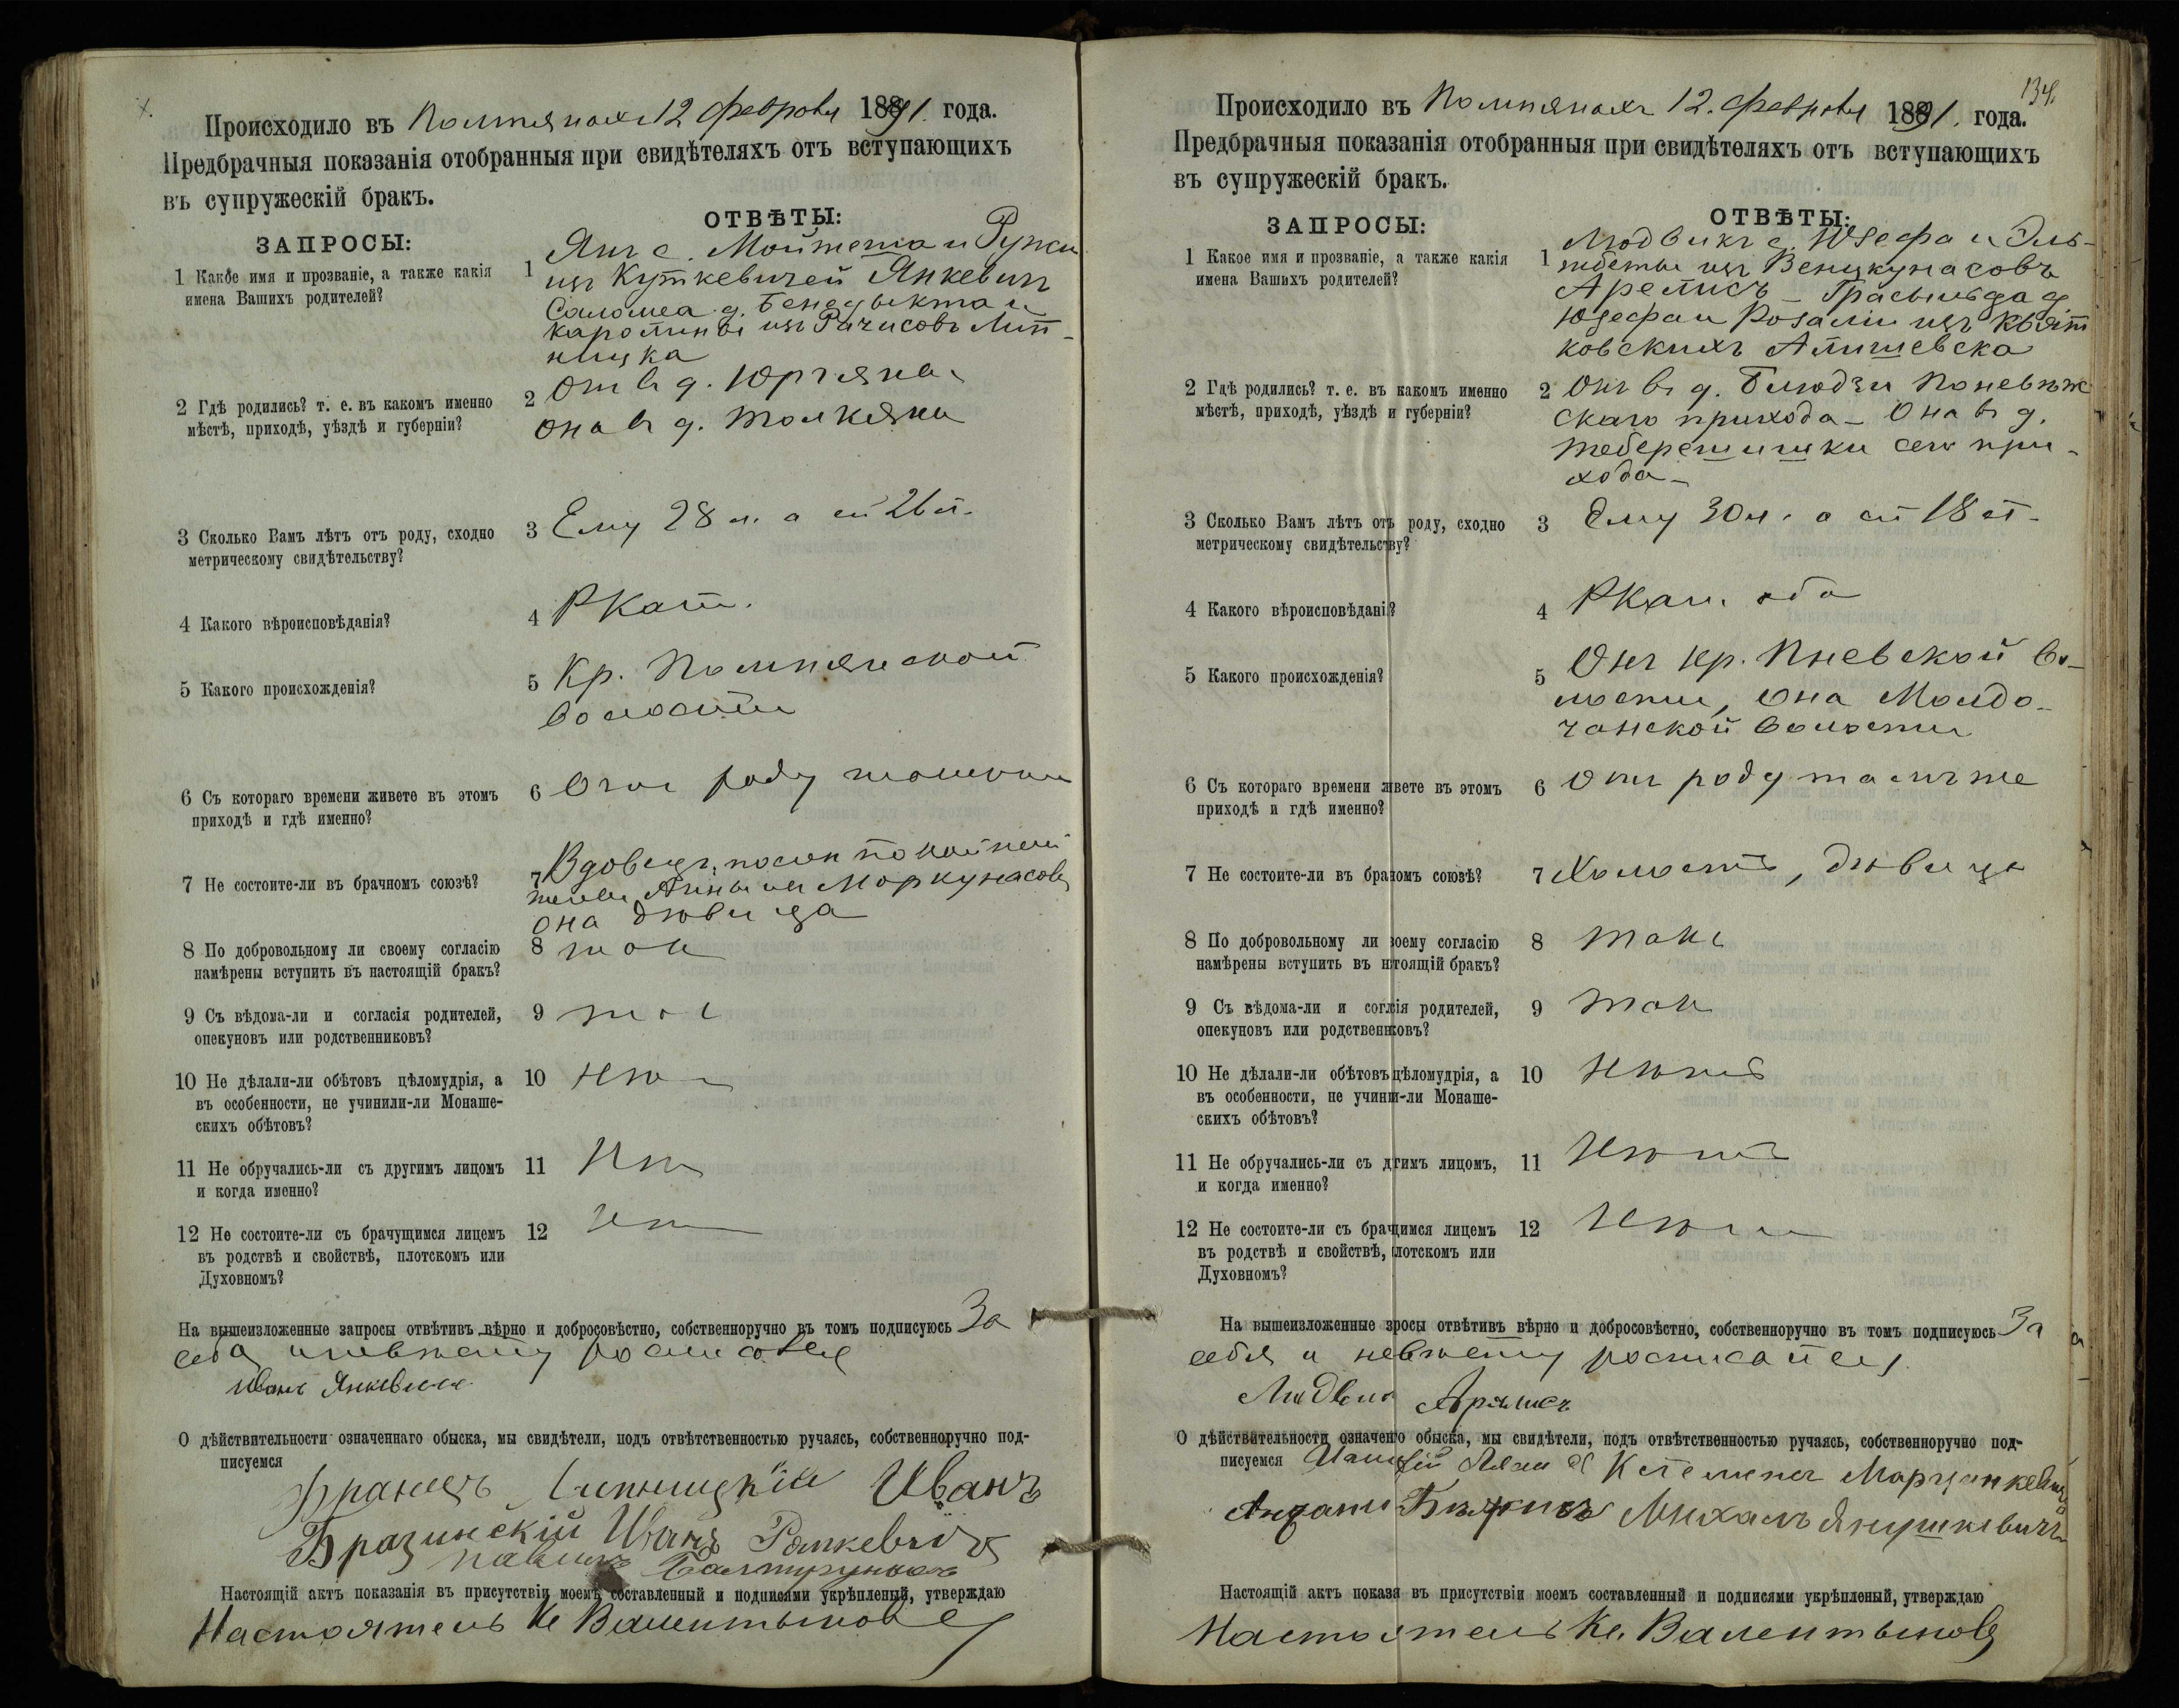 Х.
Происходило въ Помпянахъ 12 февраля 1891. года.
Предбрачныя показанія отобранныя при свидѣтеляхъ отъ вступающихъ
въ супружескій бракъ.
ЗАПРОСЫ:
ОТВѢТЫ:
1 Какое имя и прозваніе, а также какія
имена Вашихъ родителей?
1 Янъ с. Мойжеша и Рузы
изъ Куткевичей Янкевич
Саломеа д. Бенедыкта и
Каролины изъ Рачисовъ Лип-
ницка
2 Гдѣ родились? т. е. въ какомъ именно
мѣстѣ, приходѣ, уѣздѣ и губерніи?
2 Онъ въ д.
она въ д. Толкяни
3 Сколько Вамъ лѣтъ отъ роду, сходно
метрическому свидѣтельству?
3 Ему 28 л. а ей 26 л.
4 Какого вѣроисповѣданія?
4 РКат.
5 Какого происхожденія?
5 Кр. Помпянской
волости
6 Съ котораго времени живете въ этомъ
приходѣ и гдѣ именно?
6 роду
7 Не состоите-ли въ брачномъ союзѣ?
7 Вдовецъ, послѣ покойней
жены Анны изъ Моркунасовъ
она дѣвица
8 По добровольному ли своему согласію
намѣрены вступить въ настоящій бракъ?
8 так
9 Съ вѣдома-ли и согласія родителей,
опекуновъ или родственниковъ?
9 так
10 Не дѣлали-ли обѣтовъ цѣломудрія, а
въ особенности, не учинили-ли Монаше-
скихъ обѣтовъ?
10 нѣт
11 Не обручались-ли съ другимъ лицомъ
и когда именно?
11 Нѣт
12 Не состоите-ли съ брачущимся лицемъ
въ родствѣ и свойствѣ, плотскомъ или
Духовномъ?
12 Нѣт
На вышеизложенные запросы отвѣтивъ вѣрно и добросовѣстно, собственноручно въ томъ подписуюсь За
себя и невѣсту росписался
Иванъ Янкевич
О дѣйствительности означеннаго обыска, мы свидѣтели, подъ отвѣтственностью ручаясь, собственноручно под-
писуемся
Францъ Липницкій Иванъ
Бразинскій Иванъ Рамкевичъ
Балтрунас
Настоящій актъ показанія въ присутствіи моемъ составленный и подписями укрѣпленый, утверждаю
Настоятель Кс Валентыновъ
134.
Происходило въ Помпянахъ 12. февраля 1891. года.
Предбрачныя показанія отобранныя при свидѣтеляхъ отъ вступающихъ
въ супружескій бракъ.
ЗАПРОСЫ:
ОТВѢТЫ:
1 Какое имя и прозваніе, а также какія
имена Вашихъ родителей?
1 Людвикъ с. Юзефа и Эль-
жбеты изъ Венцкунасовъ
Арелисъ - Грасыльда д.
Юзефа и Розаліи изъ Квят
ковскихъ Алишевска
2 Гдѣ родились? т. е. въ какомъ именно
мѣстѣ, приходѣ, уѣздѣ и губерніи?
2 Онъ въ д. Поневѣж
скаго прихода - Она въ д.
сего при-
хода -
3 Сколько Вамъ лѣтъ отъ роду, сходно
метрическому свидѣтельству?
3 Ему 30 л. а ей 18 л.
4 Какого вѣроисповѣдані?
4 РКат. оба
5 Какого происхожденія?
5 Онъ кр. Пневской во-
лости, она
чанской волости
6 Съ котораго времени живете въ этомъ
приходѣ и гдѣ именно?
6 Отъ роду тамъ же
7 Не состоите-ли въ браномъ союзѣ?
7 Холостъ, дѣвица
8 По добровольному ли воему согласію
намѣрены вступить въ нтоящій бракъ?
8 такъ
9 Съ вѣдома-ли и соглія родителей,
опекуновъ или родственковъ?
9 так
10 Не дѣлали-ли обѣтовъ цѣломудрія, а
въ особенности, не учини-ли Монаше-
скихъ обѣтовъ?
10 нѣтъ
11 Не обручались-ли съ дгимъ лицомъ,
и когда именно?
11 Нѣтъ
12 Не состоите-ли съ бращимся лицемъ
въ родствѣ и свойствѣ, лотскомъ или
Духовномъ?
12 Нѣт
На вышеизложенные зросы отвѣтивъ вѣрно и добросовѣстно, собственноручно въ томъ подписуюсь За
себя и невѣсту росписался
Людвик Арялисъ
О дѣйствительности означенго обыска, мы свидѣтели, подъ отвѣтственностью ручаясь, собственноручно под-
писуемся Клеменсъ Марцинкевичъ
Михалъ Янушкевичъ
Настоящій актъ показа въ присутствіи моемъ составленный и подписями укрѣпленый, утверждаю
Настоятель Кс. Валентыновъ